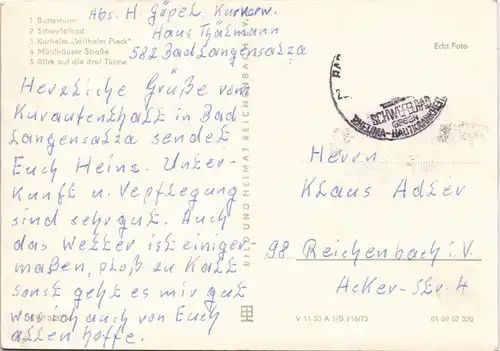 1 Butterturm
2 Schwefelbad
3 Kurheim „Wilhelm Pieck"
4 Mühlhäuser Straße
5 Blick auf die drei Türme
Abs. H. Göpel, Kurverw.
Haus Thälmann
582 Bad Langensalza
Echt Foto
Herzliche Grüße vom
Kuraufenthalt in Bad
Langensalza sendet
Euch Heinz. Unter-
kunft u. Vepflegung
sind sehr gut. Auch
das Wetter ist einiger-
maßen, bloß zu kalt
sonst geht es mir gut
was ich auch von Euch
allen hoffe.
BILD UND HEIMAT REICHENBACH
SCHWEFELBAD
GEGEN
RHEUMA-HAUTKRANKHEIT
Herrn
Klaus Adler
98 Reichenbach i. V.
Acker-Str. 4
V 11 50 A 1/B 916/75
01 09 02 020